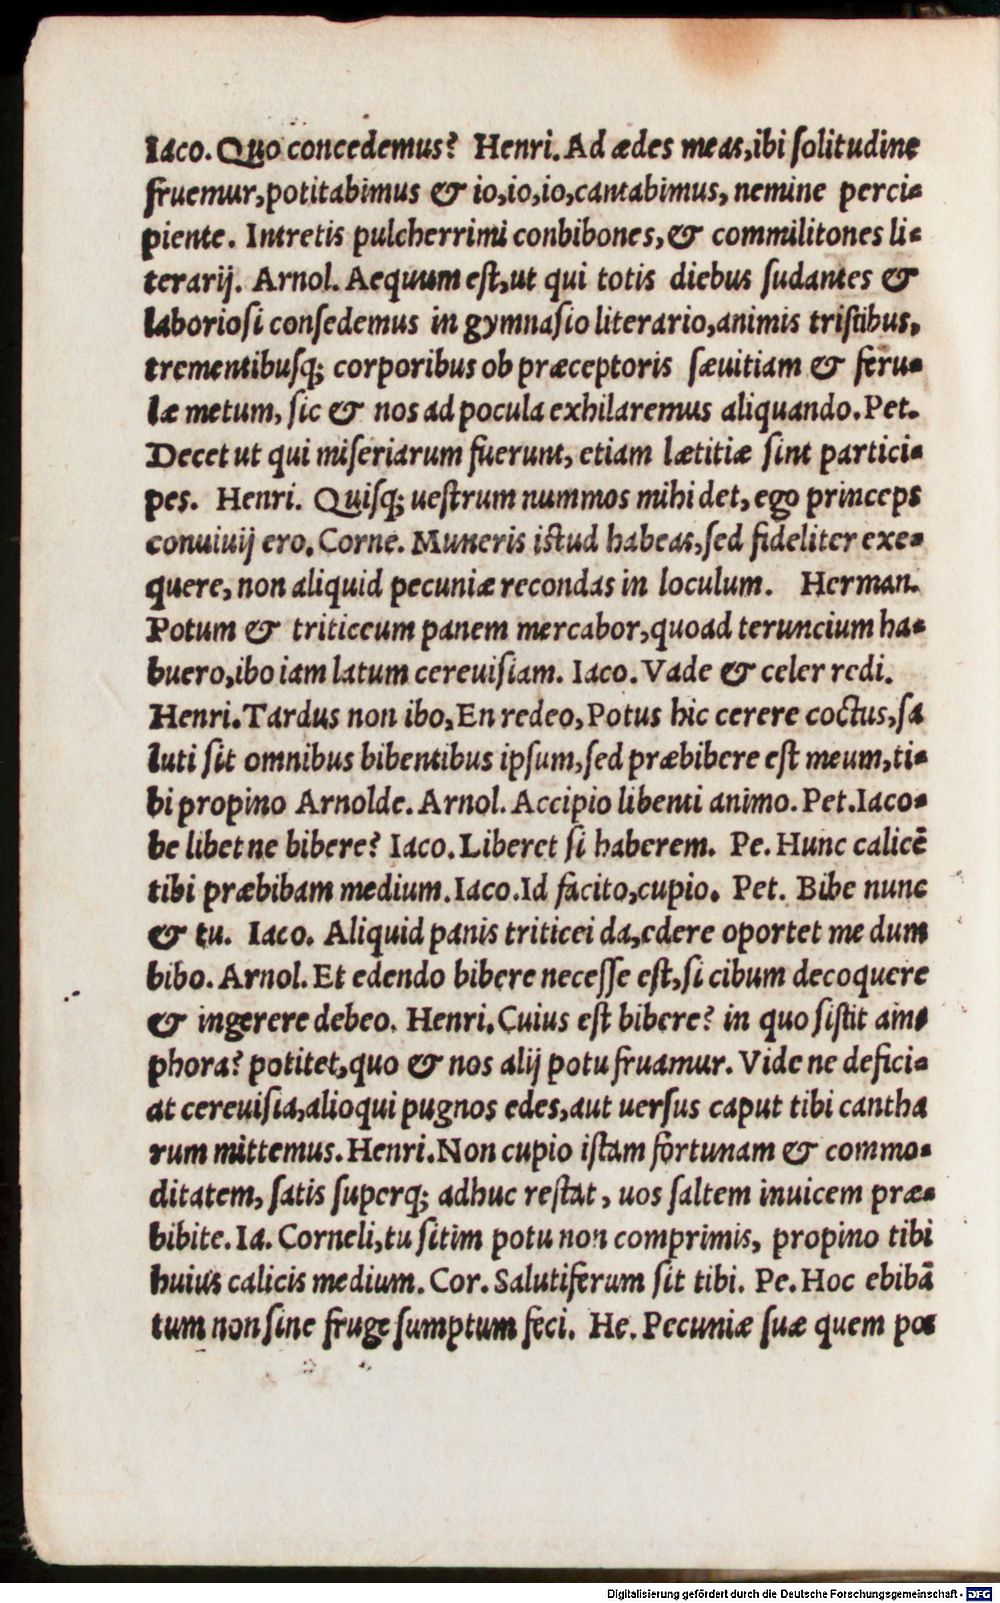 Iaco. Quo concedemus? Henri. Ad ædes meas, ibi ſolitudine
fruemur, potitabimus & io, io, io, cantabimus, nemine perci-
piente. Intretis pulcherrimi conbibones, & commilitones li-
terarij. Arnol. Aequum eſt, ut qui totis diebus ſudantes &
laborioſi conſedemus in gymnaſio literario, animis triſtibus,
trementibuſq; corporibus ob præceptoris ſæuitiam & feru-
læ metum, ſic & nos ad pocula exhilaremus aliquando. Pet.
Decet ut qui miſeriarum fuerunt, etiam lætitiæ ſint partici-
pes. Henri. Quiſq; ueſtrum nummos mihi det, ego princeps
conuiuij ero. Corne. Muneris iſtud habeas, ſed fideliter exe-
quere, non aliquid pecuniæ recondas in loculum. Herman.
Potum & triticeum panem mercabor, quoad teruncium ha-
buero, ibo iam latum cereuiſiam. Iaco. Vade & celer redi.
Henri. Tardus non ibo, En redeo, Potus hic cerere coctus, ſa
luti ſit omnibus bibentibus ipſum, ſed præbibere eſt meum, ti-
bi propino Arnolde. Arnol. Accipio libenti animo. Pet. Iaco-
be libet ne bibere? Iaco. Liberet ſi haberem. Pe. Hunc calicē
tibi præbibam medium. Iaco. Id facito, cupio. Pet. Bibe nunc
& tu. Iaco. Aliquid panis triticei da, edere oportet me dum
bibo. Arnol. Et edendo bibere neceſſe eſt, ſi cibum decoquere
& ingerere debeo. Henri. Cuius eſt bibere? in quo ſiſtit am-
phora? potitet, quo & nos alij potu fruamur. Vide ne defici-
at cereuiſia, alioqui pugnos edes, aut uerſus caput tibi cantha
rum mittemus. Henri. Non cupio iſtam fortunam & commo-
ditatem, ſatis ſuperq; adhuc reſtat, uos ſaltem inuicem præ-
bibite. Ia. Corneli, tu ſitim potu non comprimis, propino tibi
huius calicis medium. Cor. Salutiferum ſit tibi. Pe. Hoc ebibā
tum non ſine fruge ſumptum feci. He. Pecuniæ ſuæ quem po-
Digitalisierung gefördert durch die Deutsche Forschungsgemeinschaft - DFG